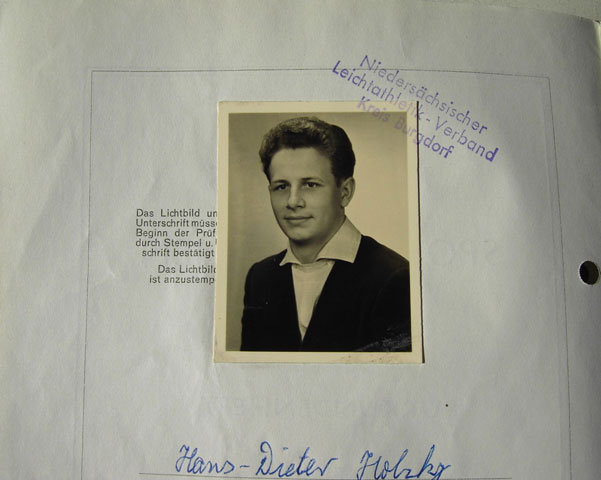 Niedersächsischer
Leichtathletik-Verband
Kreis Burgdorf
Das Lichtbild un
Unterschrift müsse
Beginn der Prüf
durch Stempel u.
schrift bestätigt
Das Lichtbild
ist anzustemp
Hans-Dieter